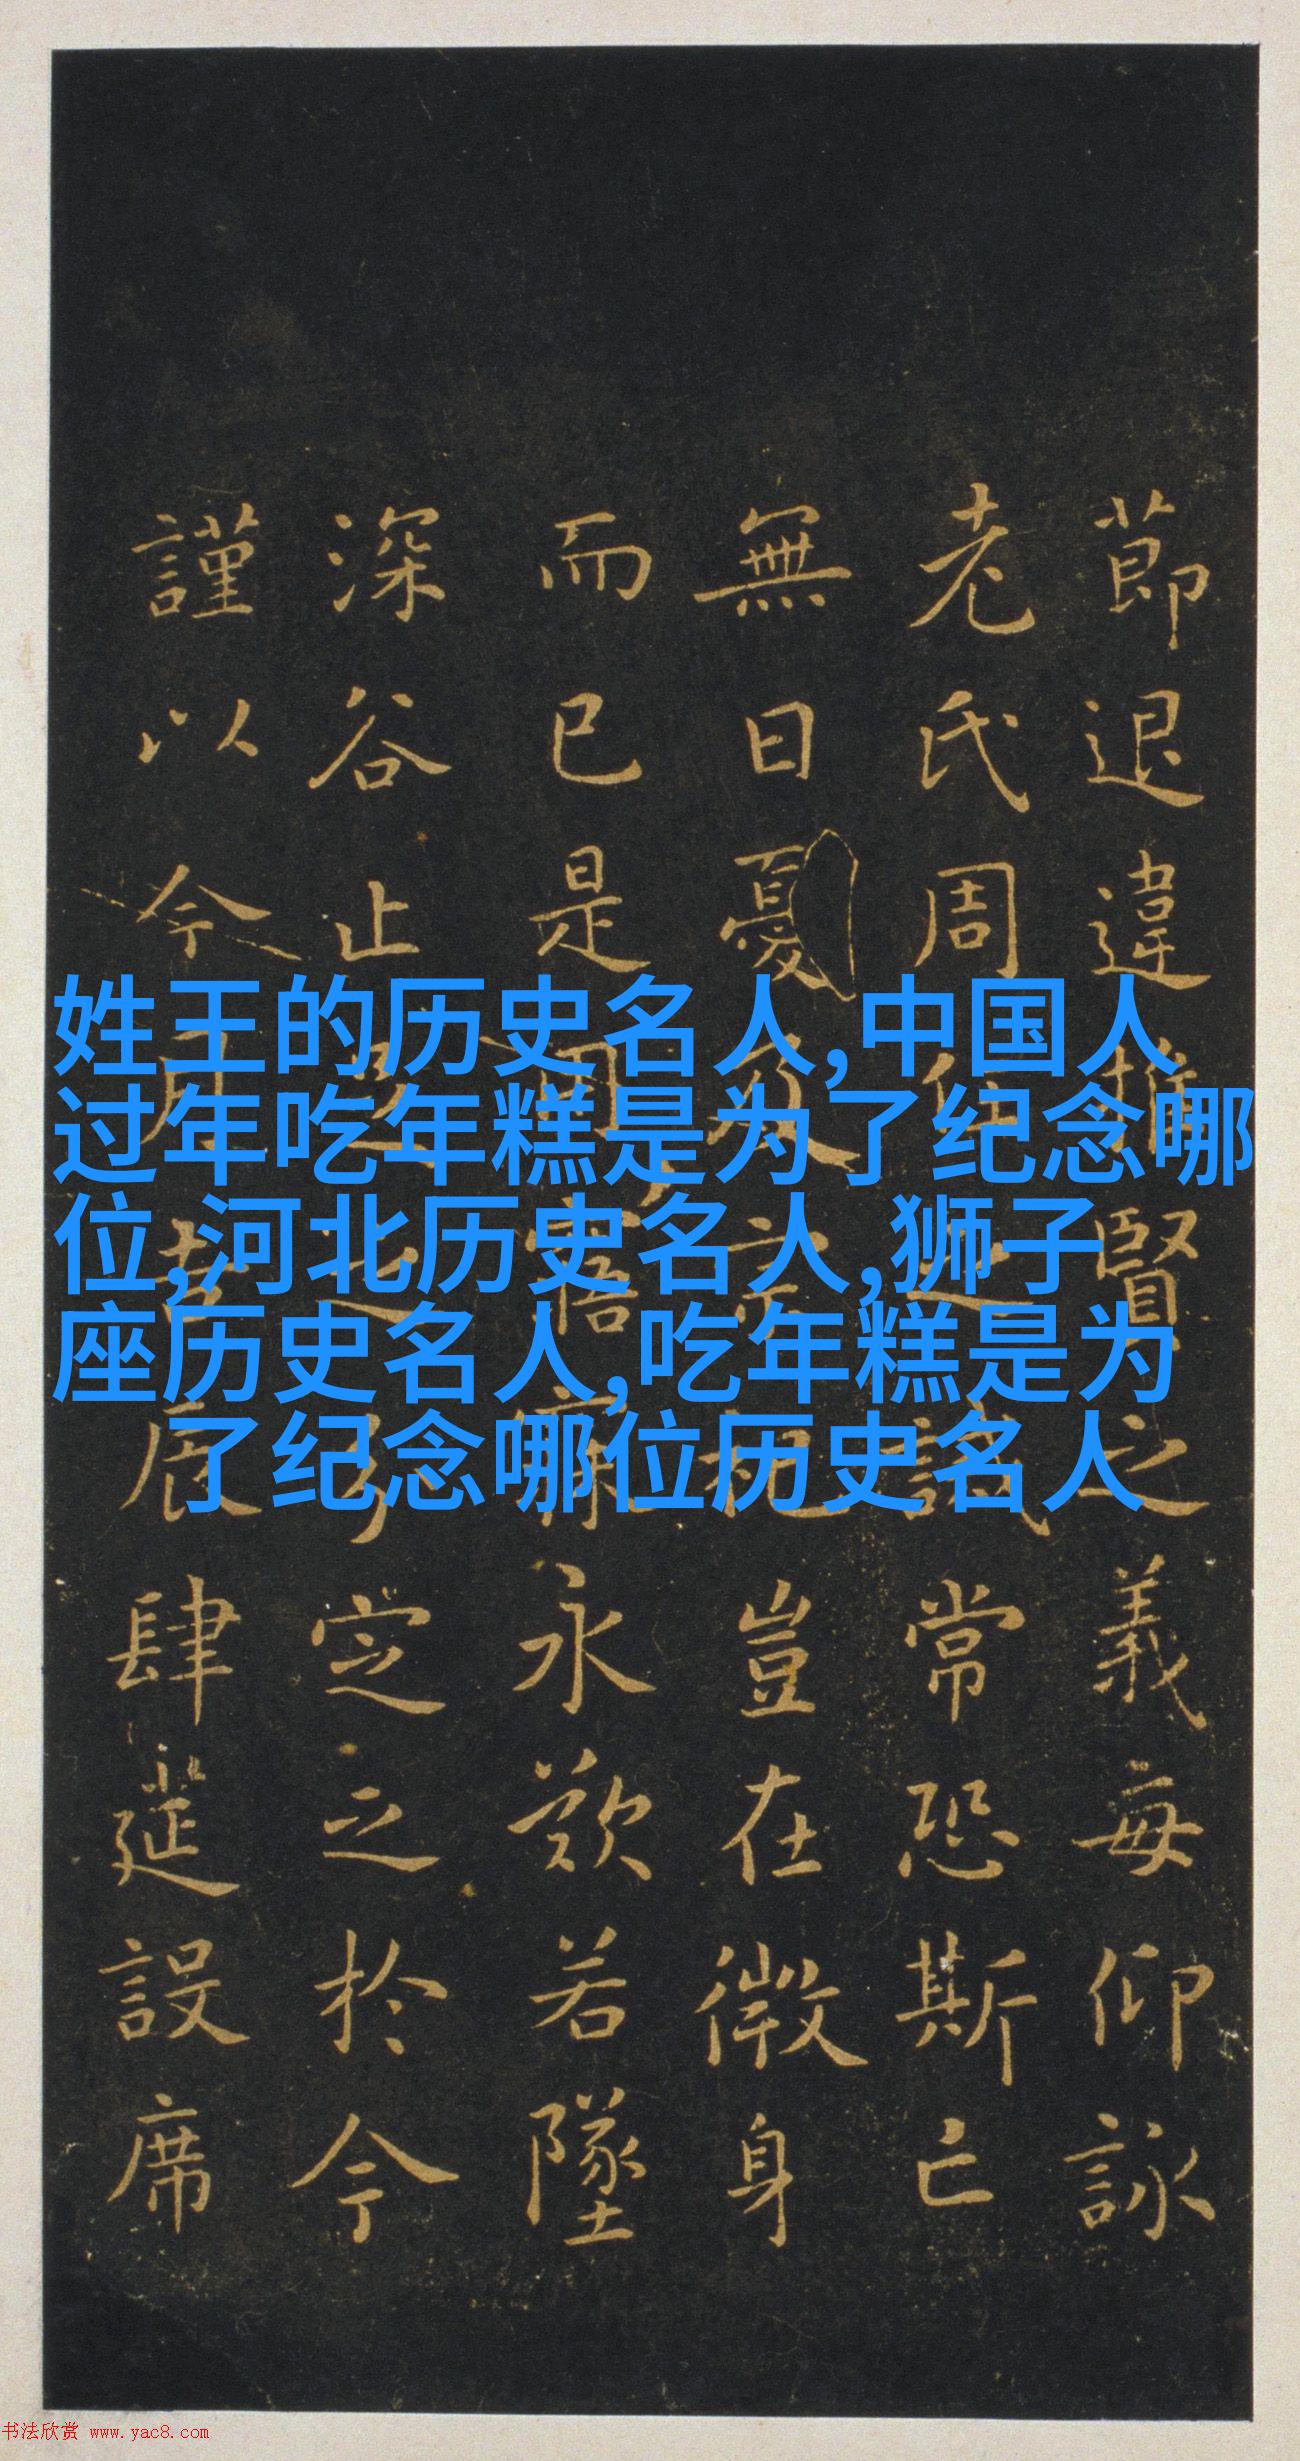 姓王的历史名人,中国人
过年吃年糕是为了纪念哪
位,河北历史名人,狮子
座历史名人,吃年糕是为
了纪念哪位历史名人
莭退違推賢之義每仰詠
老氏周任之誡常恐斯亡
無日憂及宗祀豈在微身
而已是用寤寐永歎若墜
深谷止足之分定之於今
謹以今月吉辰肆筵設席
书法欣赏 www.yac8.com